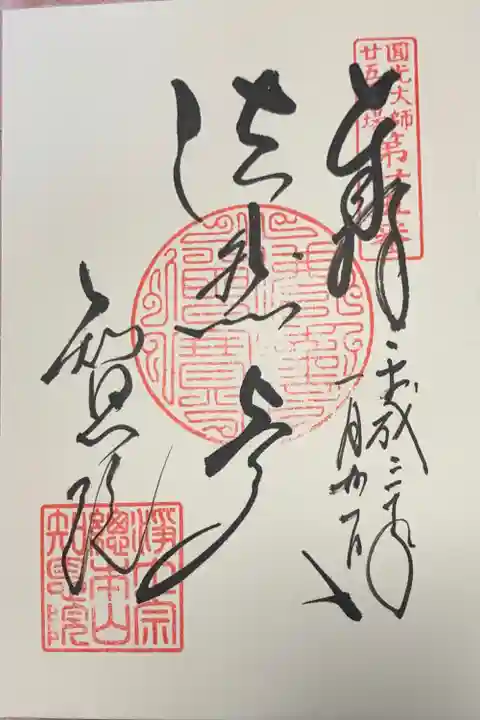 圓光大師
廿五霊場
第廿五番
奉拝
平成三十年
一月廿一日
法然上人
知恩院
浄土宗
總本山
知恩院